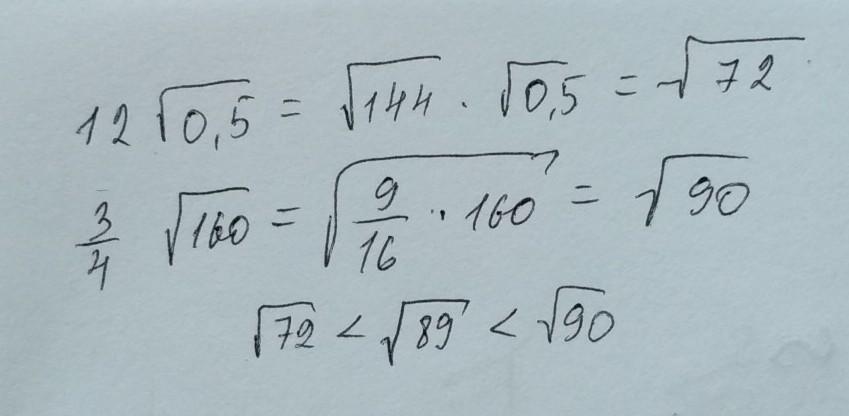 12 √0,5 = √144 · √0,5 = √72
3/4 √160 = √(9/16 · 160) = √90
√72 < √89 < √90